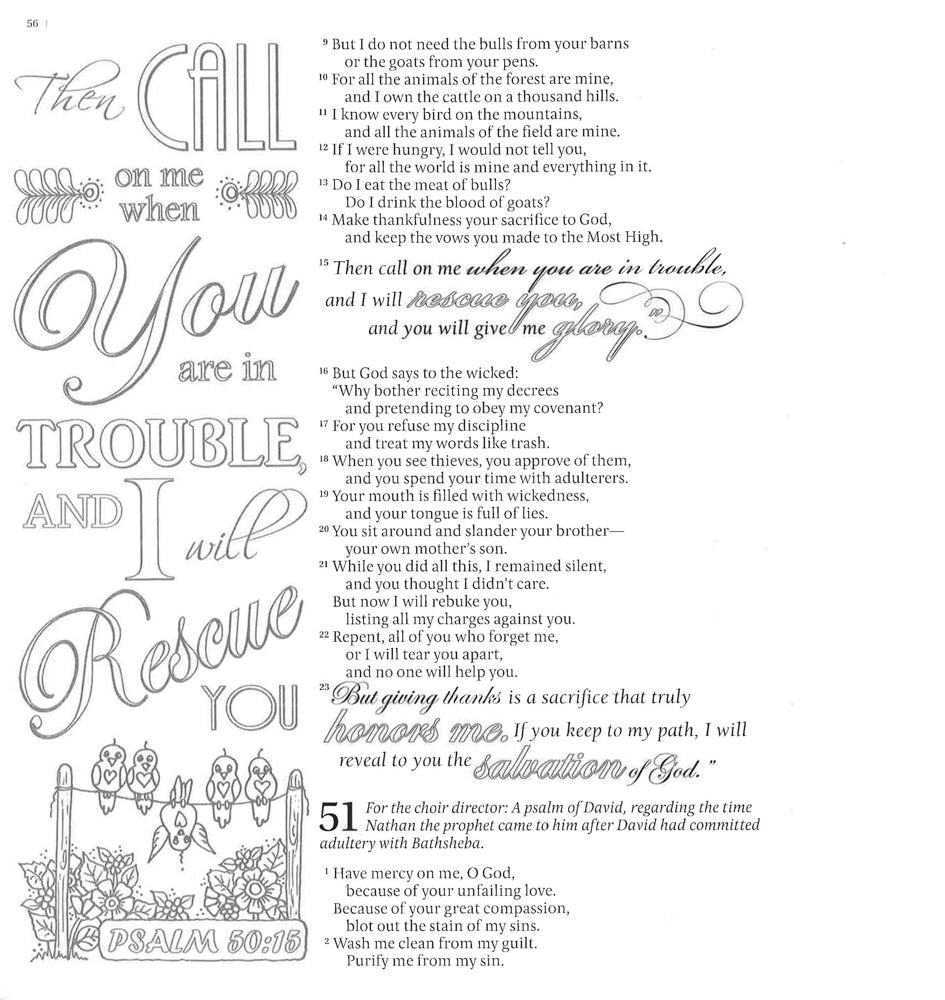 56
Then CALL
on me
when
You
are in
TROUBLE,
AND I will
Rescue
YOU
PSALM 50:15
9 But I do not need the bulls from your barns
or the goats from your pens.
10 For all the animals of the forest are mine,
and I own the cattle on a thousand hills.
11 I know every bird on the mountains,
and all the animals of the field are mine.
12 If I were hungry, I would not tell you,
for all the world is mine and everything in it.
13 Do I eat the meat of bulls?
Do I drink the blood of goats?
14 Make thankfulness your sacrifice to God,
and keep the vows you made to the Most High.
15 Then call on me when you are in trouble,
and I will rescue you,
and you will give me glory.”
16 But God says to the wicked:
“Why bother reciting my decrees
and pretending to obey my covenant?
17 For you refuse my discipline
and treat my words like trash.
18 When you see thieves, you approve of them,
and you spend your time with adulterers.
19 Your mouth is filled with wickedness,
and your tongue is full of lies.
20 You sit around and slander your brother—
your own mother’s son.
21 While you did all this, I remained silent,
and you thought I didn’t care.
But now I will rebuke you,
listing all my charges against you.
22 Repent, all of you who forget me,
or I will tear you apart,
and no one will help you.
23 But giving thanks is a sacrifice that truly
honors me. If you keep to my path, I will
reveal to you the salvation of God.”
51 For the choir director: A psalm of David, regarding the time
Nathan the prophet came to him after David had committed
adultery with Bathsheba.
1 Have mercy on me, O God,
because of your unfailing love.
Because of your great compassion,
blot out the stain of my sins.
2 Wash me clean from my guilt.
Purify me from my sin.